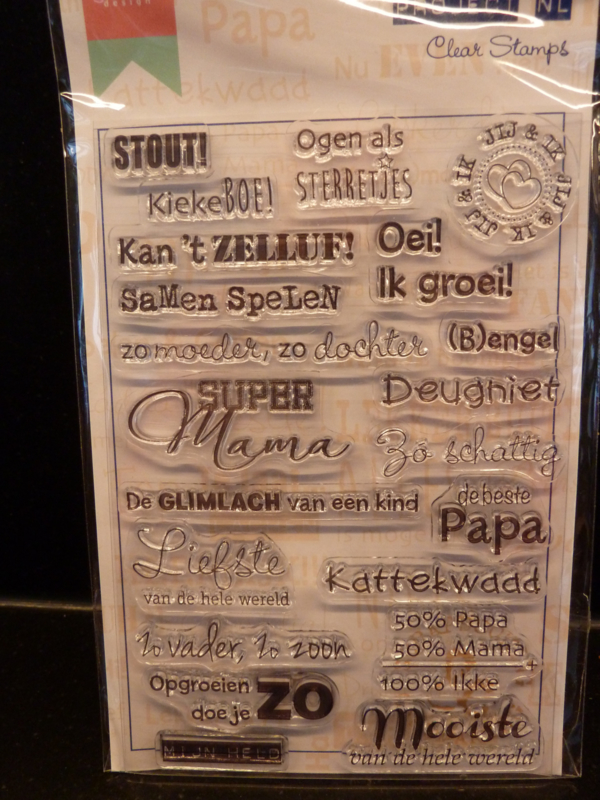 DESIGN
PROJECT NL
Clear Stamps
STOUT!
Ogen als
STERRETJES
KiekeBOE!
JIJ & IK JIJ & IK JIJ & IK
Kan 't ZELLUF!
Oei!
Ik groei!
SaMen SpeLeN
zo moeder, zo dochter
(B)engel
SUPER
Mama
Deugniet
Zó schattig
De GLIMLACH van een kind
de beste
Papa
Liefste
van de hele wereld
Kattekwaad
50% Papa
50% Mama
+
100% Ikke
Zo vader, Zo zoon
Opgroeien
doe je ZO
MIJN HELD
Mooiste
van de hele wereld